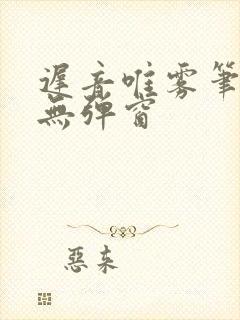 遲音唯雾筆
無彈窗
惡來